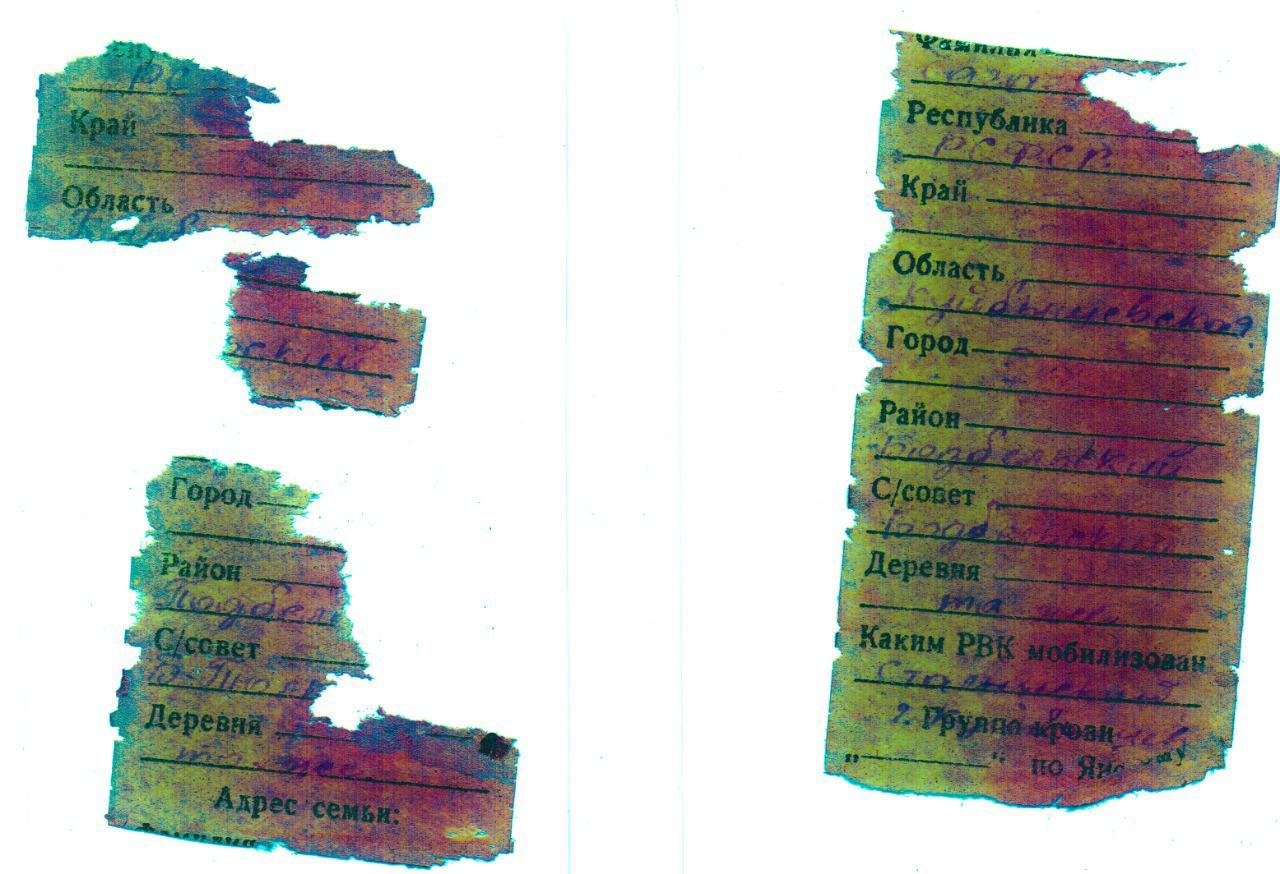 РС
Край
Область
ский
Город
Район
Подбел
С/совет
Деревня
та же
Адрес семьи:
Фамилия
Фамилия
Республика
РСФСР
Край
Область
Куйбышевская
Город
Район
Подбельский
С/совет
Деревня
та же
Каким РВК мобилизован
Сталинский
Группа крови
„ “ по